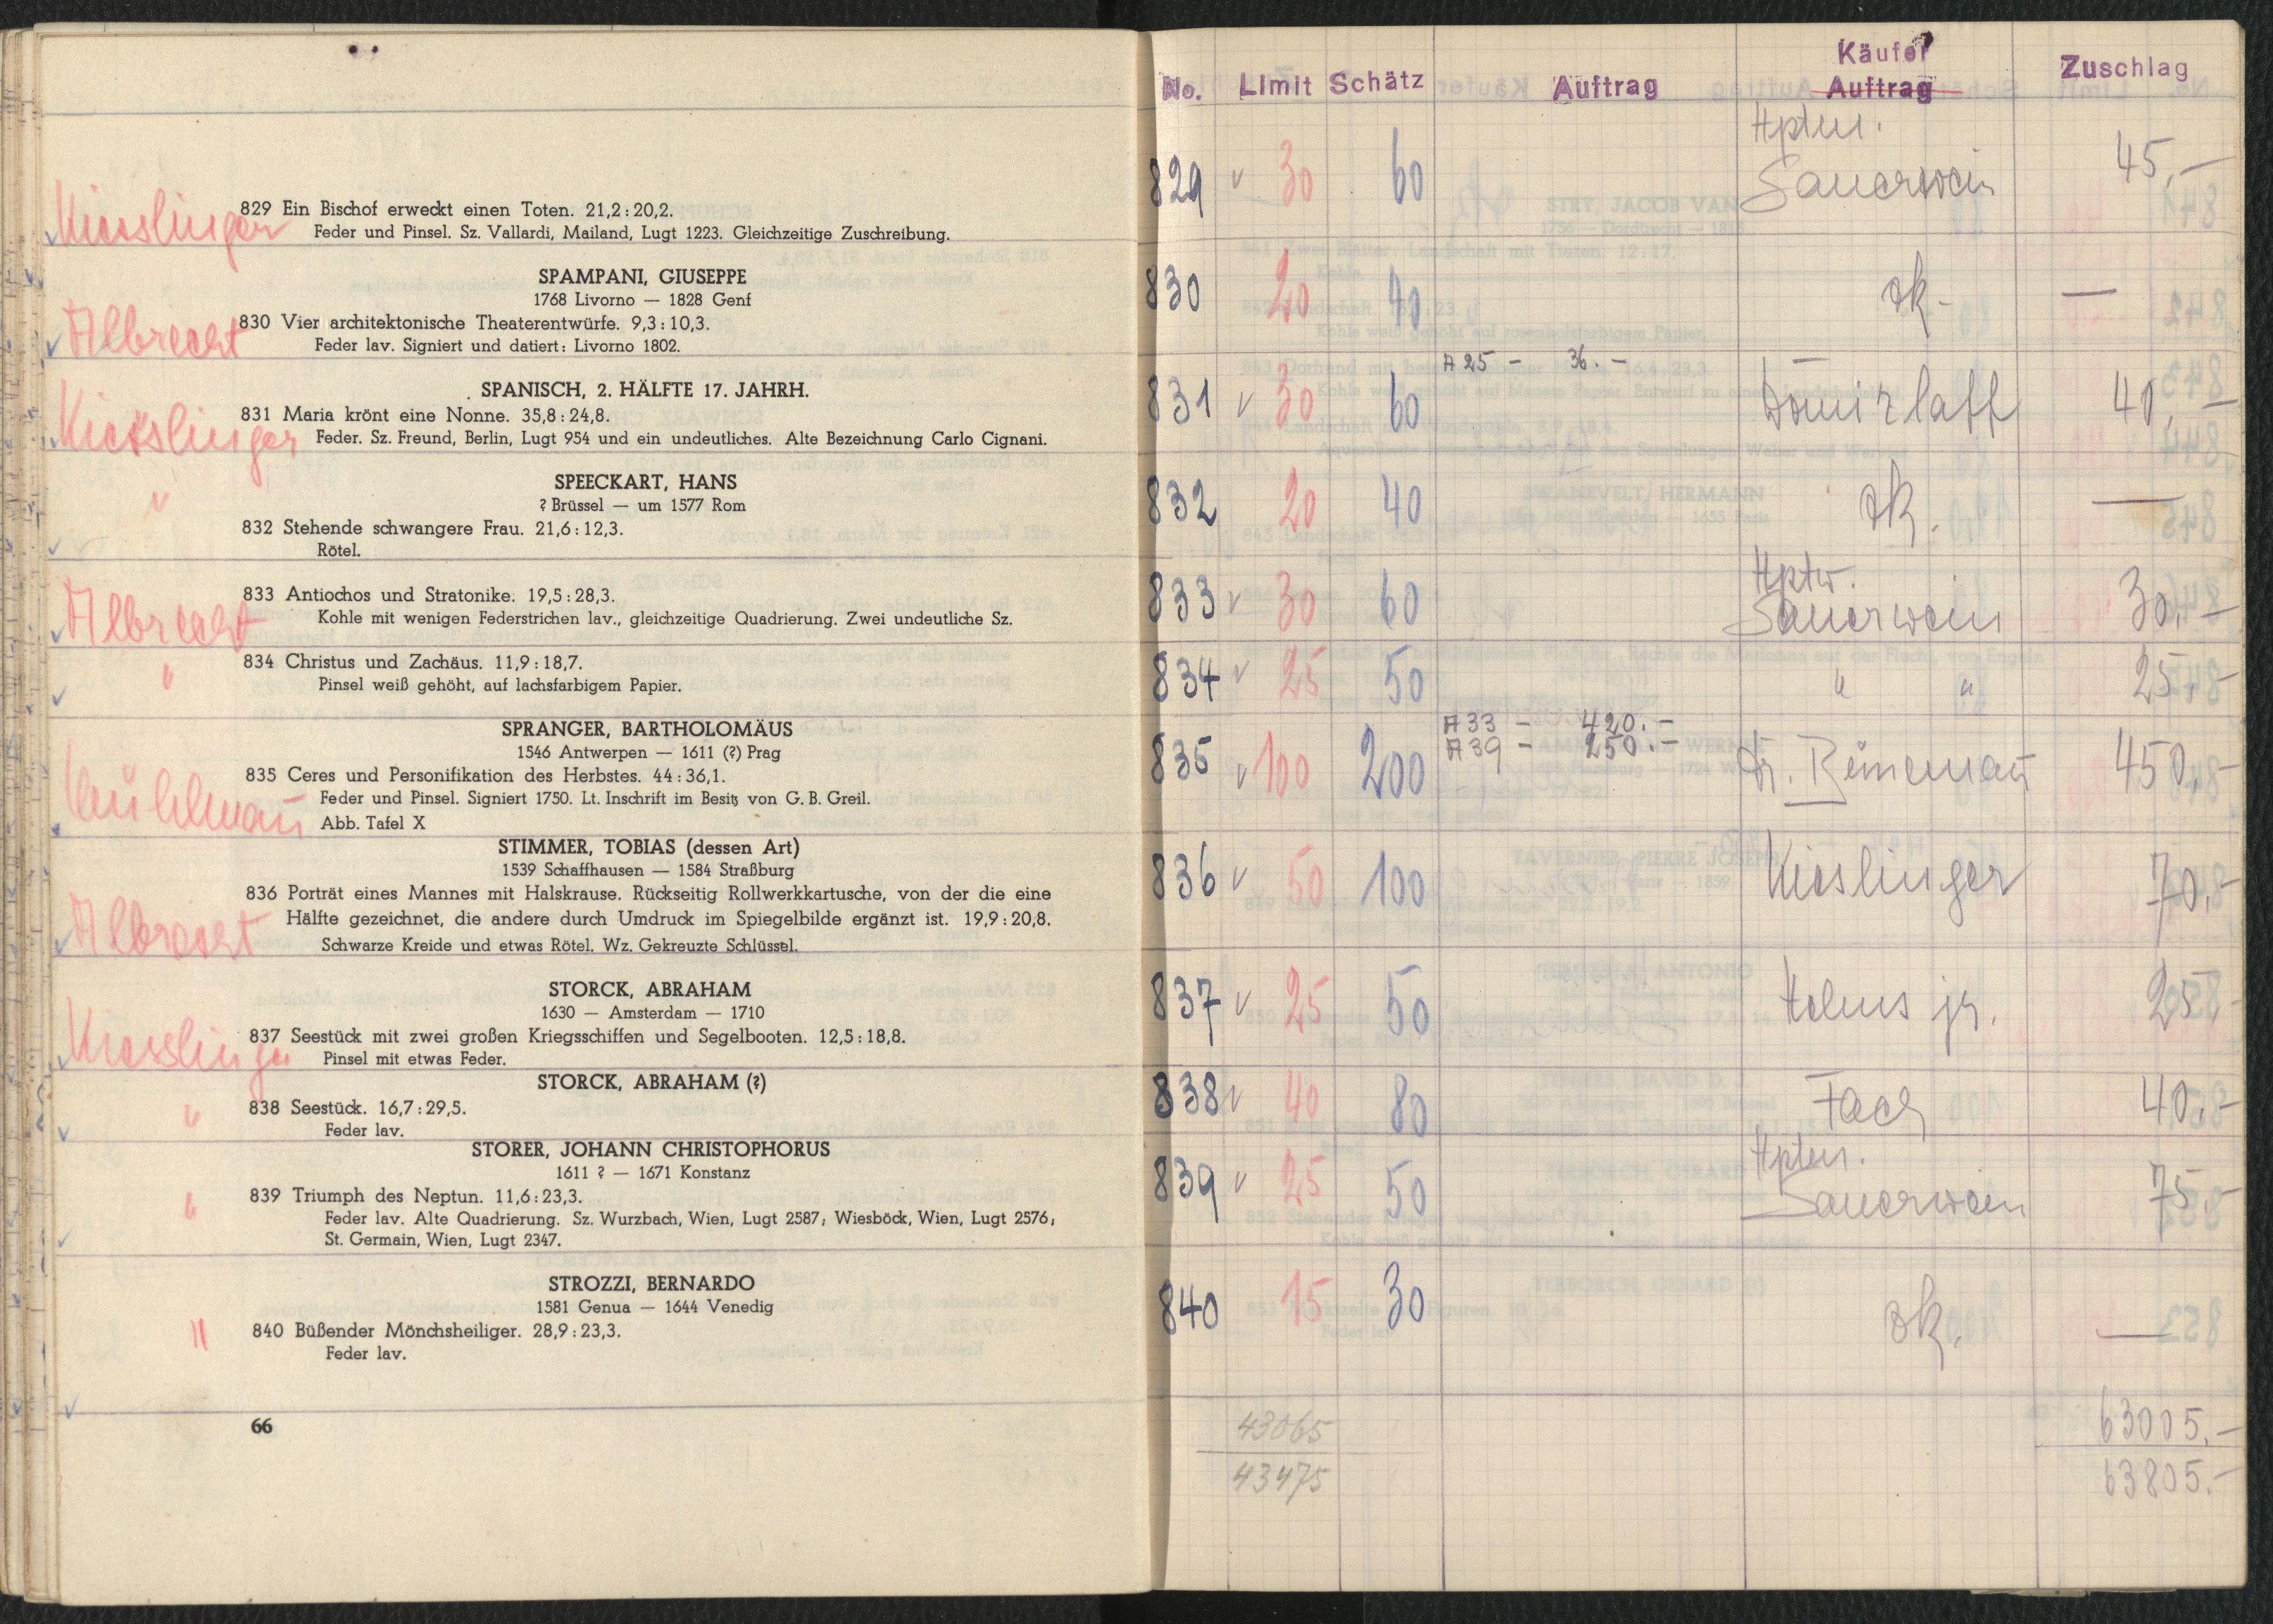 829 Ein Bischof erweckt einen Toten. 21,2 : 20,2.
Kiesslinger
Feder und Pinsel. Sz. Vallardi, Mailand, Lugt 1223. Gleichzeitige Zuschreibung.
SPAMPANI, GIUSEPPE
1768 Livorno — 1828 Genf
Albrecht
830 Vier architektonische Theaterentwürfe. 9,3 : 10,3.
Feder lav. Signiert und datiert: Livorno 1802.
SPANISCH, 2. HÄLFTE 17. JAHRH.
831 Maria krönt eine Nonne. 35,8 : 24,8.
Kiesslinger
Feder. Sz. Freund, Berlin, Lugt 954 und ein undeutliches. Alte Bezeichnung Carlo Cignani.
SPEECKART, HANS
? Brüssel — um 1577 Rom
"
832 Stehende schwangere Frau. 21,6 : 12,3.
Rötel.
833 Antiochos und Stratonike. 19,5 : 28,3.
Albrecht
Kohle mit wenigen Federstrichen lav., gleichzeitige Quadrierung. Zwei undeutliche Sz.
834 Christus und Zachäus. 11,9 : 18,7.
"
Pinsel weiß gehöht, auf lachsfarbigem Papier.
SPRANGER, BARTHOLOMÄUS
1546 Antwerpen — 1611 (?) Prag
835 Ceres und Personifikation des Herbstes. 44 : 36,1.
Feder und Pinsel. Signiert 1750. Lt. Inschrift im Besitz von G. B. Greil.
Abb. Tafel X
STIMMER, TOBIAS (dessen Art)
1539 Schaffhausen — 1584 Straßburg
836 Porträt eines Mannes mit Halskrause. Rückseitig Rollwerkkartusche, von der die eine
Hälfte gezeichnet, die andere durch Umdruck im Spiegelbilde ergänzt ist. 19,9 : 20,8.
Albrecht
Schwarze Kreide und etwas Rötel. Wz. Gekreuzte Schlüssel.
STORCK, ABRAHAM
1630 — Amsterdam — 1710
837 Seestück mit zwei großen Kriegsschiffen und Segelbooten. 12,5 : 18,8.
Kiesslinger
Pinsel mit etwas Feder.
STORCK, ABRAHAM (?)
838 Seestück. 16,7 : 29,5.
"
Feder lav.
STORER, JOHANN CHRISTOPHORUS
1611 ? — 1671 Konstanz
839 Triumph des Neptun. 11,6 : 23,3.
"
Feder lav. Alte Quadrierung. Sz. Wurzbach, Wien, Lugt 2587; Wiesböck, Wien, Lugt 2576;
St. Germain, Wien, Lugt 2347.
STROZZI, BERNARDO
1581 Genua — 1644 Venedig
" 840 Büßender Mönchsheiliger. 28,9 : 23,3.
Feder lav.
66
No. Limit Schätz Auftrag Käufer Auftrag Zuschlag
Hptm.
829 30 60 Sauerwein 45,–
830 20 40 zk. —
A 25 – 36.–
831 30 60 40,–
832 20 40 zk. —
Hptm.
833 30 60 Sauerwein 30,–
834 25 50 " " 25,–
A 33 – 420.–
A 39 – 250.–
835 100 200 Dr. 450,–
836 50 100 Kieslinger 70,–
837 25 50 Helms jr. 25
838 40 80 Fach 40,–
Hptm.
839 25 50 Sauerwein 75,–
840 15 30 zk. —
43065 63005.–
43475 63805.–